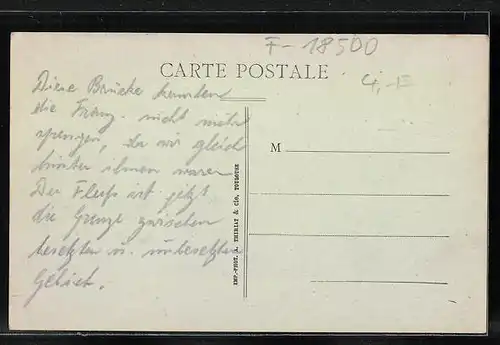 F-18500
CARTE POSTALE
4,-E
Diese Brücke konnten
die Franz. nicht mehr
sprengen, da wir gleich
hinter ihnen waren
Der Fluss ist jetzt
die Grenze zwischen
besetzten u. unbesetzten
Gebiet.
M
IMP.-PHOT. A. THIRIAT & Cie, TOULOUSE